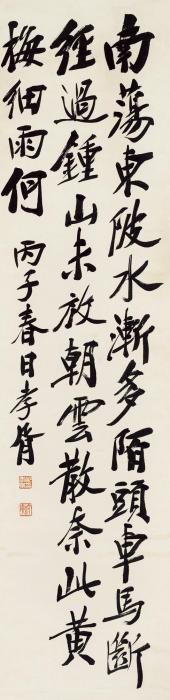 南蕩東陂水漸多陌頭車馬斷
經過鍾山未放朝雲散奈此黃
梅細雨何
丙子春日孝胥